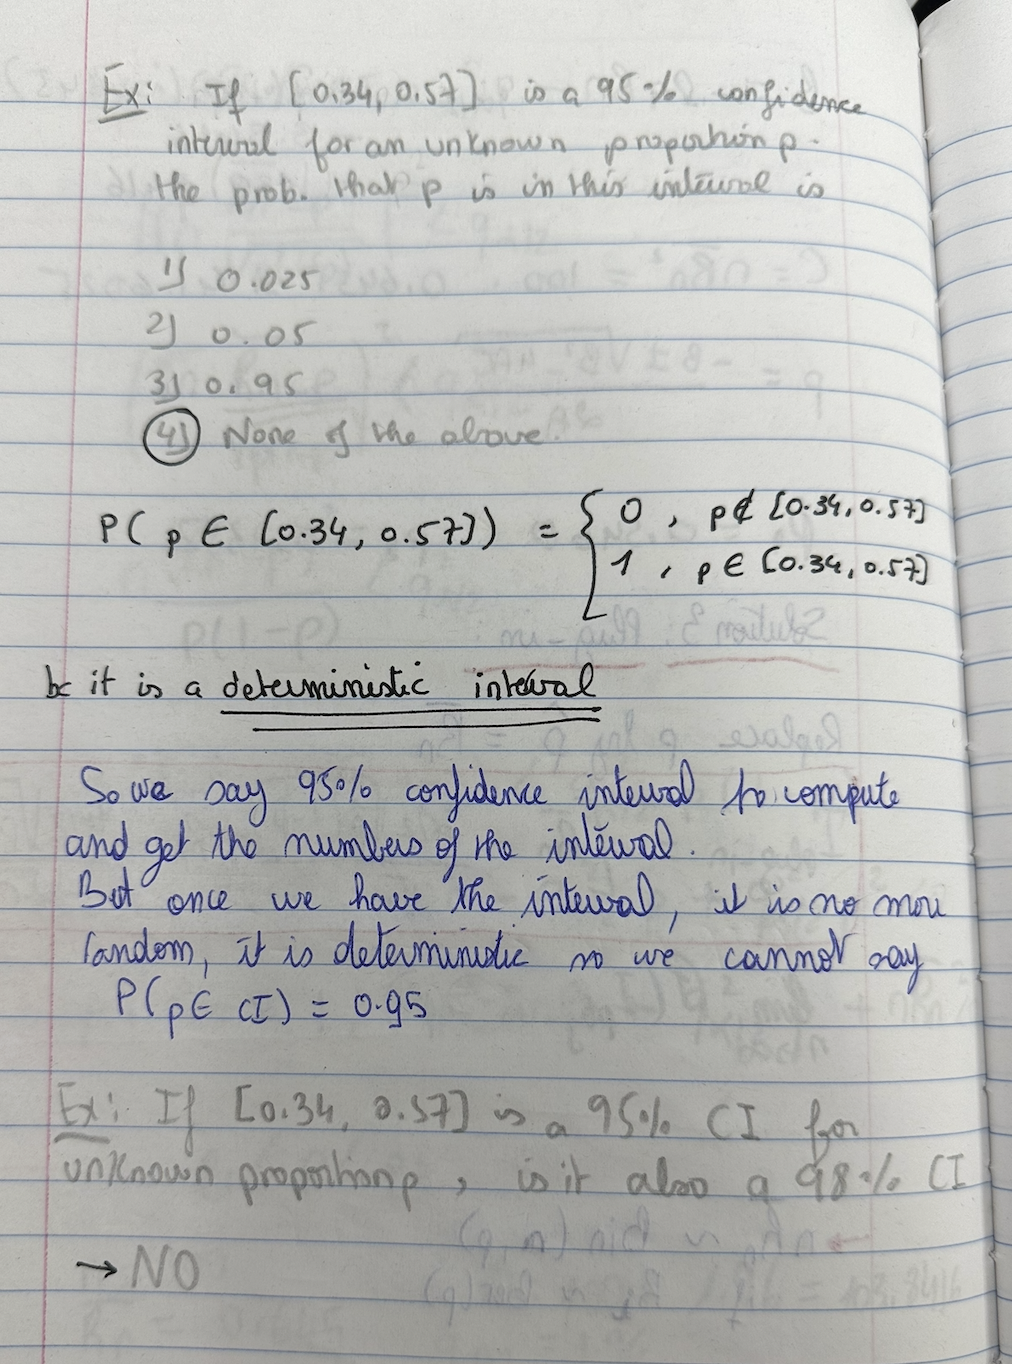 Ex: If [0.34, 0.57] is a 95% confidence
interval for an unknown proportion p.
the prob. that p is in this interval is
1) 0.025
2) 0.05
3) 0.95
4) None of the above.
P( p ∈ [0.34, 0.57]) = { 0 , p ∉ [0.34, 0.57]
1 , p ∈ [0.34, 0.57]
bc it is a deterministic interval
So we say 95% confidence interval to compute
and get the numbers of the interval.
But once we have the interval, it is no more
random, it is deterministic so we cannot say
P(p ∈ CI) = 0.95
Ex: If [0.34, 0.57] is a 95% CI for
unknown proportion p, is it also a 98% CI
→ NO